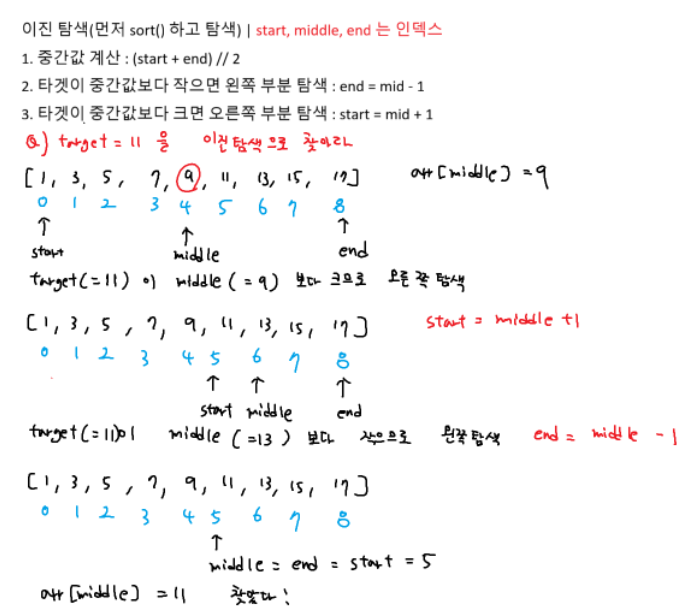 이진 탐색(먼저 sort() 하고 탐색) | start, middle, end 는 인덱스
1. 중간값 계산 : (start + end) // 2
2. 타겟이 중간값보다 작으면 왼쪽 부분 탐색 : end = mid - 1
3. 타겟이 중간값보다 크면 오른쪽 부분 탐색 : start = mid + 1
Q) target = 11 을 이진탐색으로 찾아라
[1, 3, 5, 7, 9, 11, 13, 15, 17] arr[middle] = 9
0 1 2 3 4 5 6 7 8
↑ ↑ ↑
start middle end
target(=11) 이 middle (=9) 보다 크므로 오른쪽 탐색
[1, 3, 5, 7, 9, 11, 13, 15, 17] start = middle +1
0 1 2 3 4 5 6 7 8
↑ ↑ ↑
start middle end
target(=11)이 middle (=13) 보다 작으므로 왼쪽탐색 end = middle - 1
[1, 3, 5, 7, 9, 11, 13, 15, 17]
0 1 2 3 4 5 6 7 8
↑
middle = end = start = 5
arr[middle] = 11 찾았다!